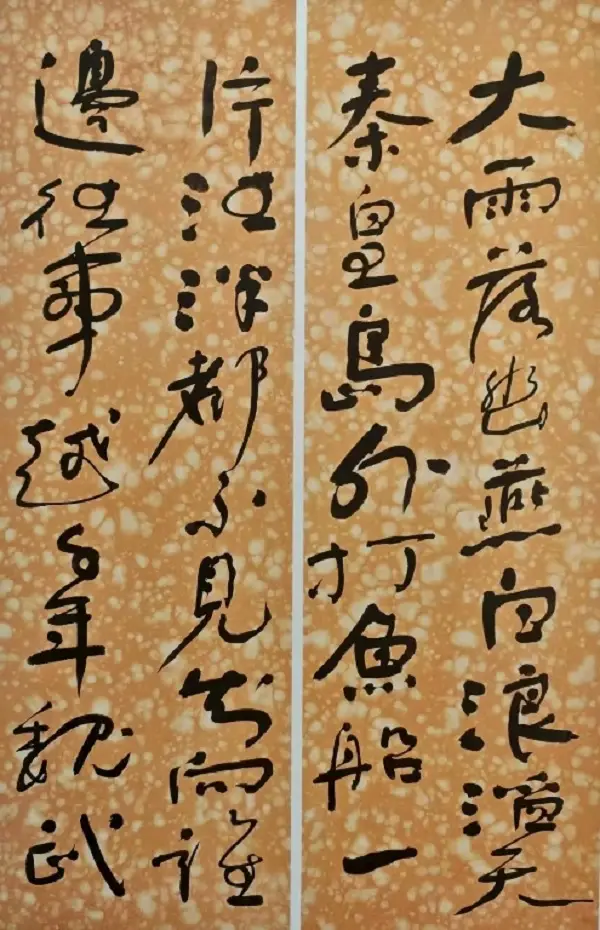 大雨落幽燕白浪滔天
秦皇島外打魚船一
片汪洋都不見知向誰
邊往事越千年魏武